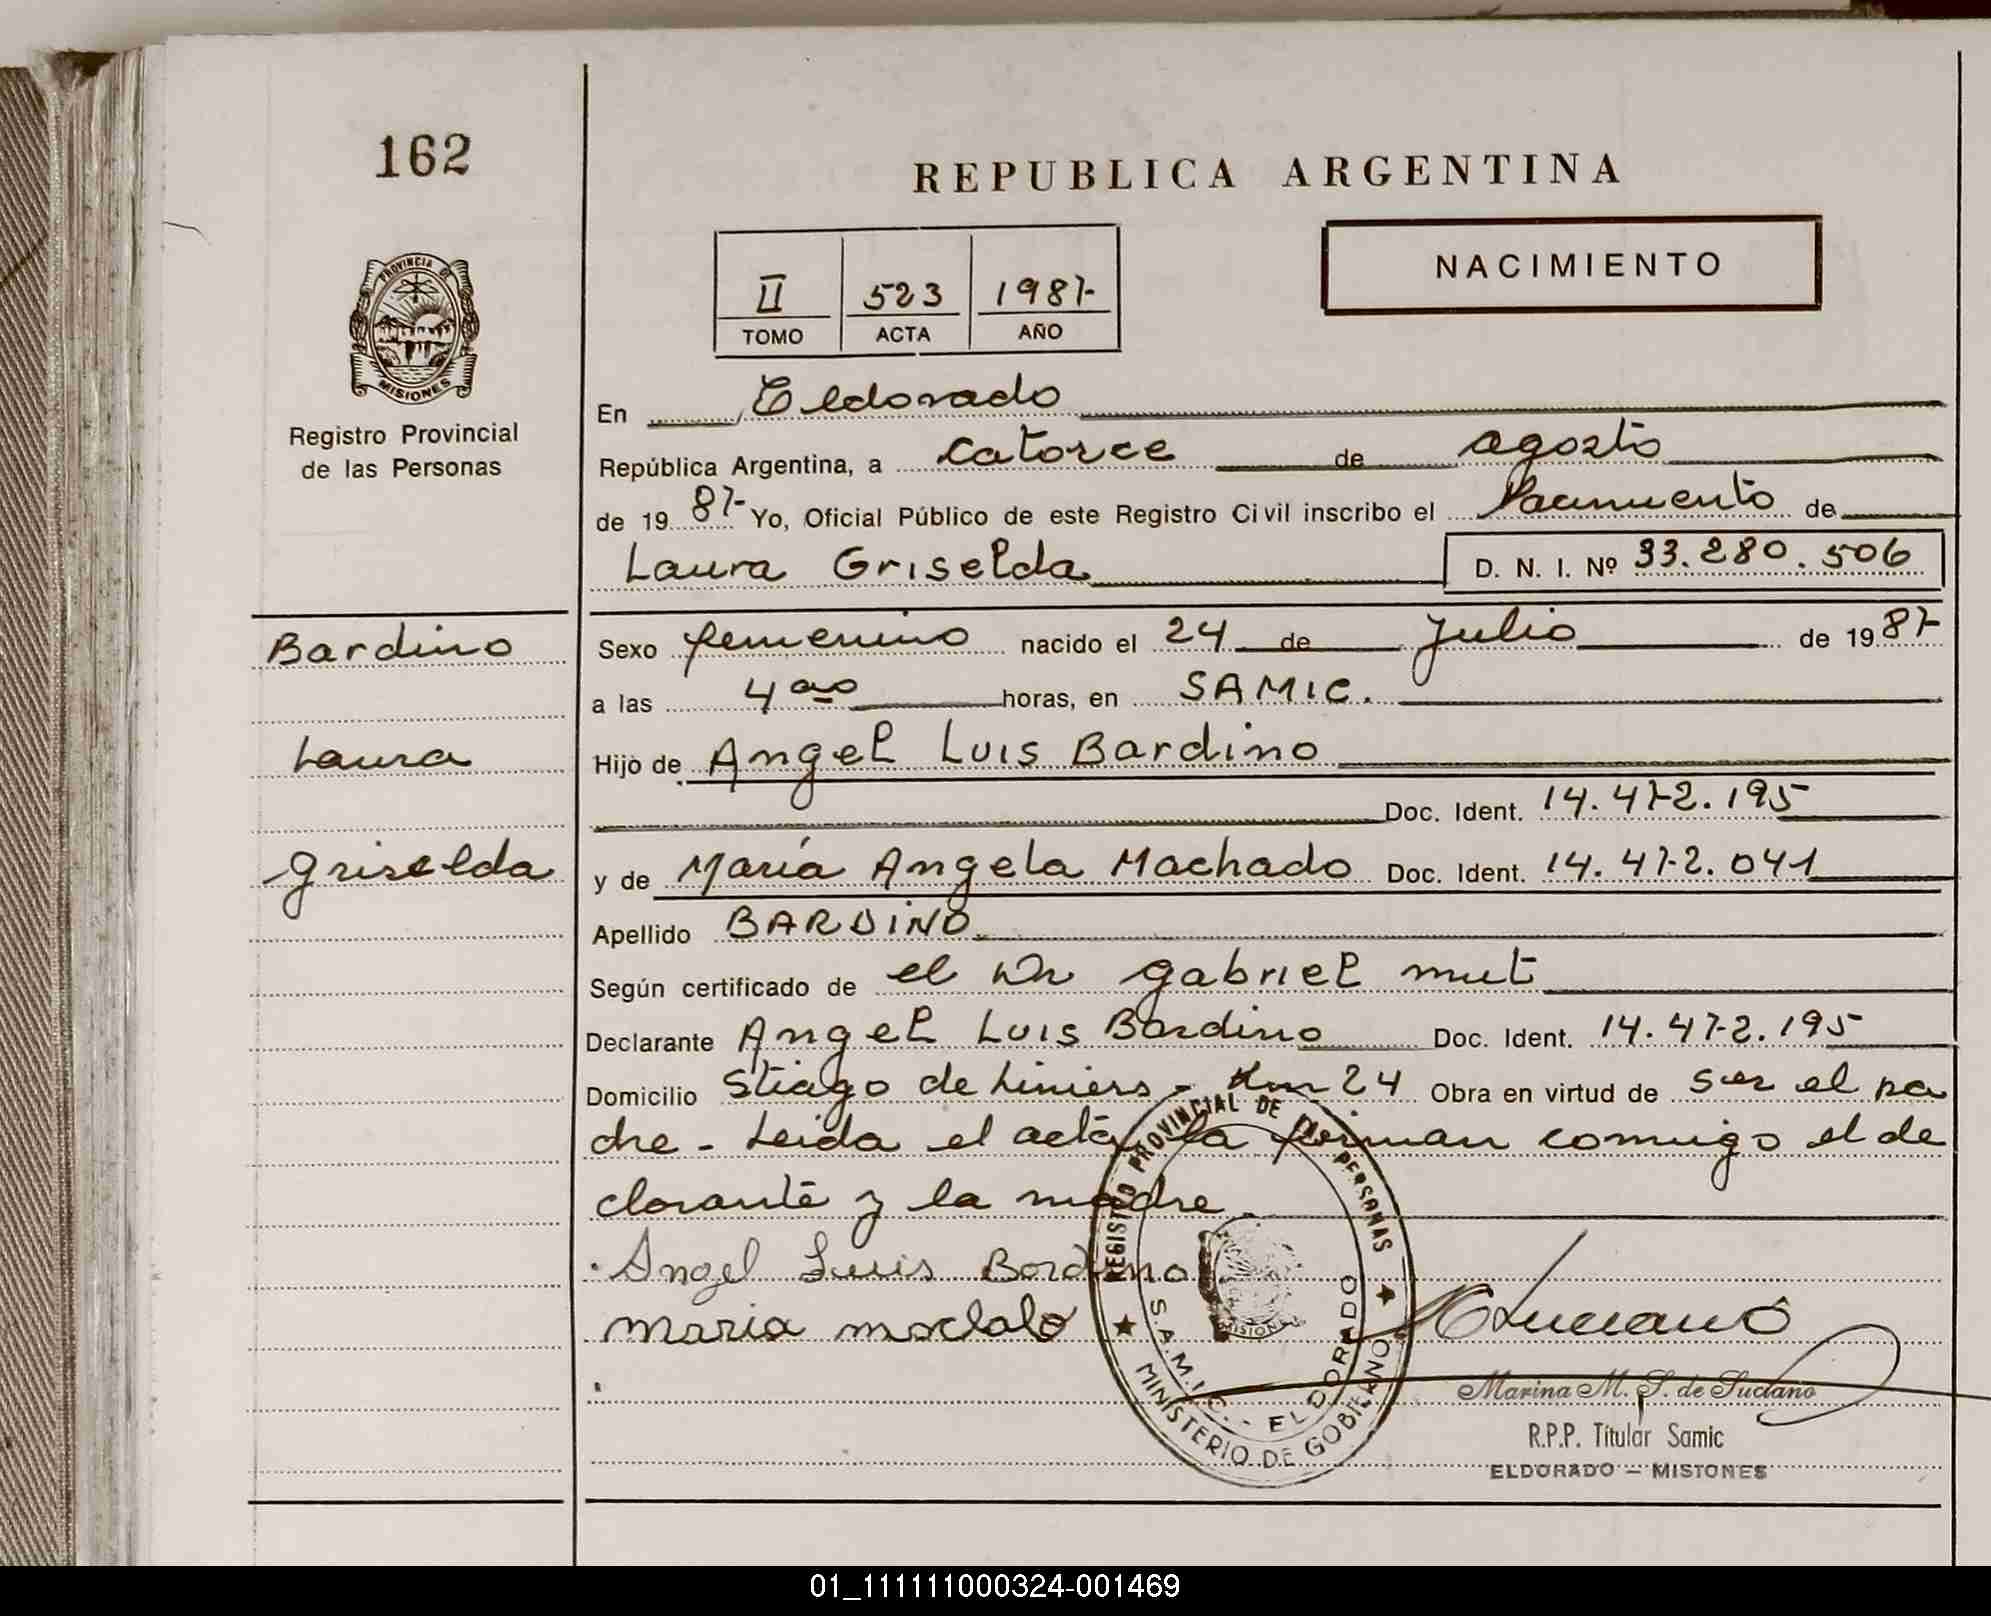 162
REPUBLICA ARGENTINA
NACIMIENTO
II 523 1987
TOMO ACTA AÑO
PROVINCIA DE
MISIONES
Registro Provincial
de las Personas
En Eldorado
República Argentina, a catorce de agosto
de 1987 Yo, Oficial Público de este Registro Civil inscribo el Nacimiento de
Laura Griselda D. N. I. Nº 33.280.506
Bardino
Laura
Griselda
Sexo femenino nacido el 24 de Julio de 1987
a las 4 00 horas, en SAMIC.
Hijo de Angel Luis Bardino
Doc. Ident. 14.472.195
y de María Angela Machado Doc. Ident. 14.472.041
Apellido BARDINO
Según certificado de el Dr gabriel mut
Declarante Angel Luis Bardino Doc. Ident. 14.472.195
Domicilio Stiago de Liniers - Km 24 Obra en virtud de ser el pa
dre - Leida el acta la firman conmigo el de
clarante y la madre
Angel Luis Bordino
maria
REGISTRO PROVINCIAL DE LAS PERSONAS
S.A.M.I.C. - ELDORADO
MINISTERIO DE GOBIERNO
MISIONES
Luciano
Marina M. S. de Luciano
R.P.P. Titular Samic
ELDORADO — MISIONES
01_111111000324-001469